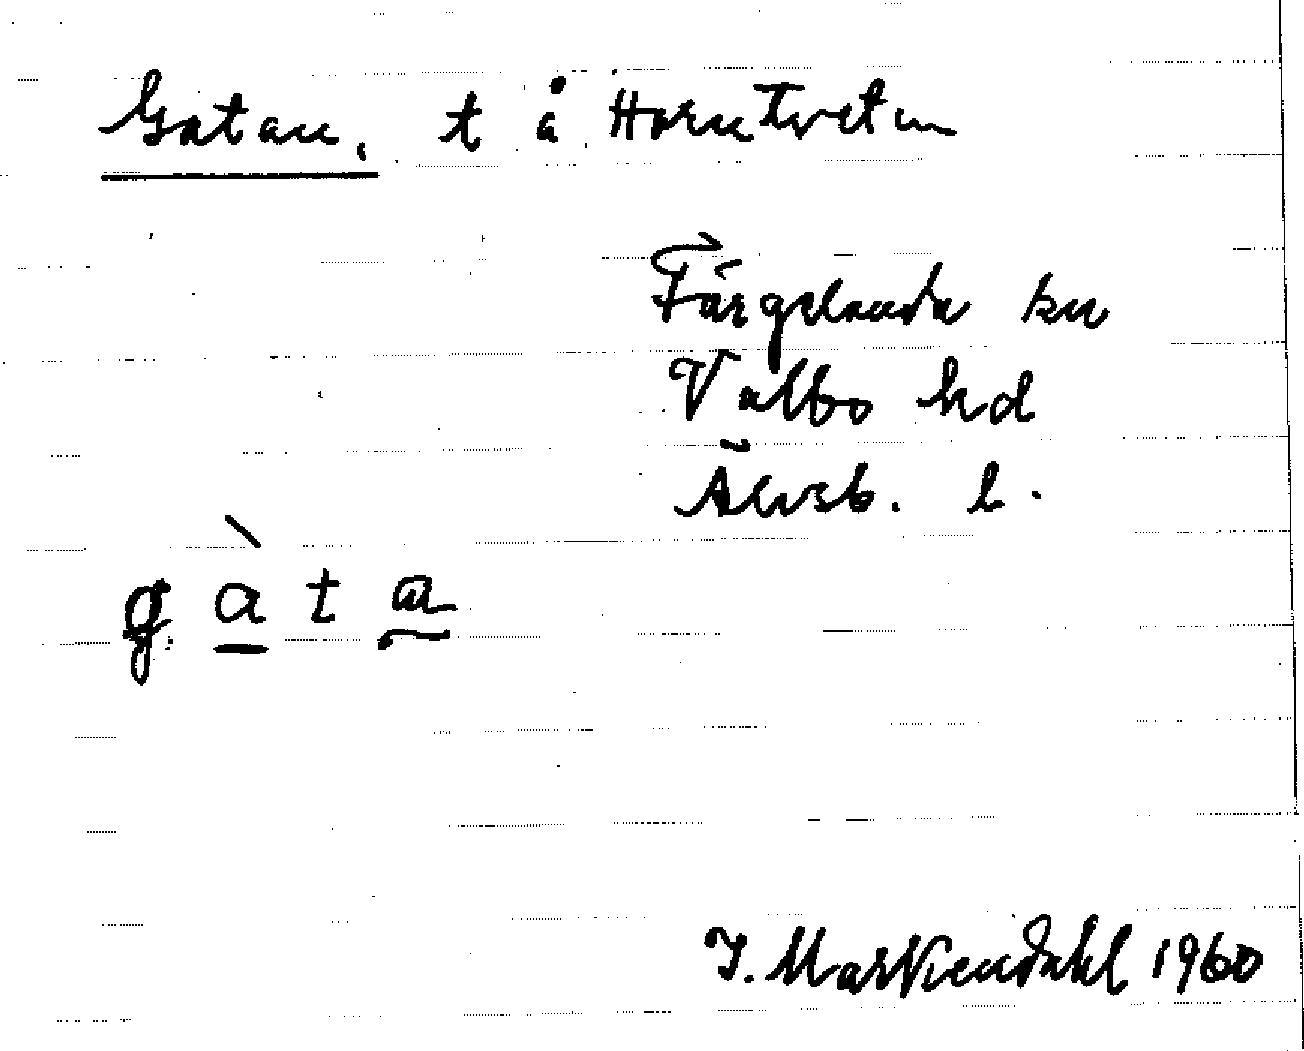 Gatan, t å Horntveten
Färgelanda sn
Valbo hd
Älvsb. l.
g à t a
I. Markendahl 1960